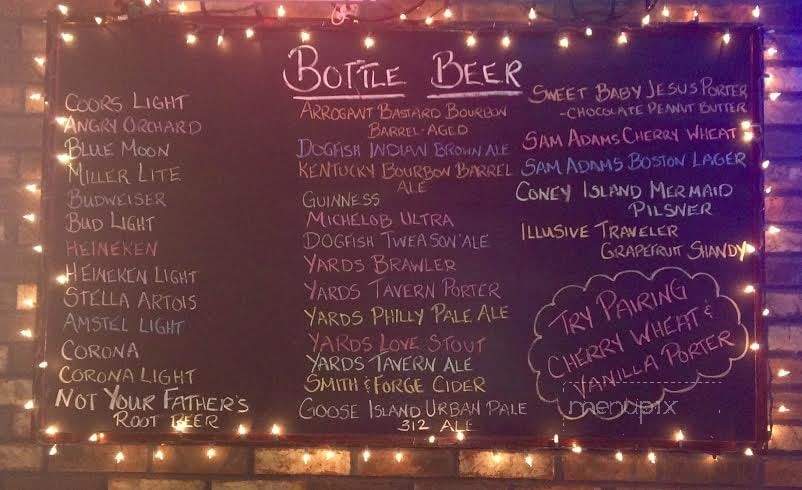 BOTTLE BEER
COORS LIGHT
ANGRY ORCHARD
BLUE MOON
MILLER LITE
BUDWEISER
BUD LIGHT
HEINEKEN
HEINEKEN LIGHT
STELLA ARTOIS
AMSTEL LIGHT
CORONA
CORONA LIGHT
NOT YOUR FATHER'S
ROOT BEER
ARROGANT BASTARD BOURBON
BARREL-AGED
DOGFISH INDIAN BROWN ALE
KENTUCKY BOURBON BARREL
ALE
GUINNESS
MICHELOB ULTRA
DOGFISH TWEASON'ALE
YARDS BRAWLER
YARDS TAVERN PORTER
YARDS PHILLY PALE ALE
YARDS LOVE STOUT
YARDS TAVERN ALE
SMITH & FORGE CIDER
GOOSE ISLAND URBAN PALE
312 ALE
SWEET BABY JESUS PORTER
-CHOCOLATE PEANUT BUTTER
SAM ADAMS CHERRY WHEAT
SAM ADAMS BOSTON LAGER
CONEY ISLAND MERMAID
PILSNER
ILLUSIVE TRAVELER
GRAPEFRUIT SHANDY
TRY PAIRING
CHERRY WHEAT &
VANILLA PORTER
menupix